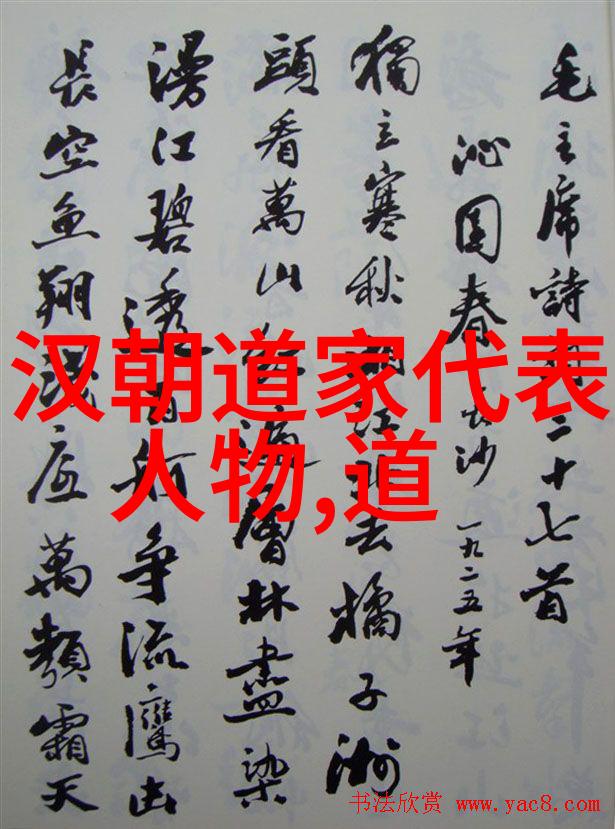 毛主席詩詞三十七首
沁园春 长沙 一九二五年
獨立寒秋湘江北去橘子洲
頭看萬山红遍層林盡染
漫江碧透百舸争流鷹击
長空鱼翔浅底萬類霜天
汉朝道家代表
人物,道
书法欣赏 www.yac8.com